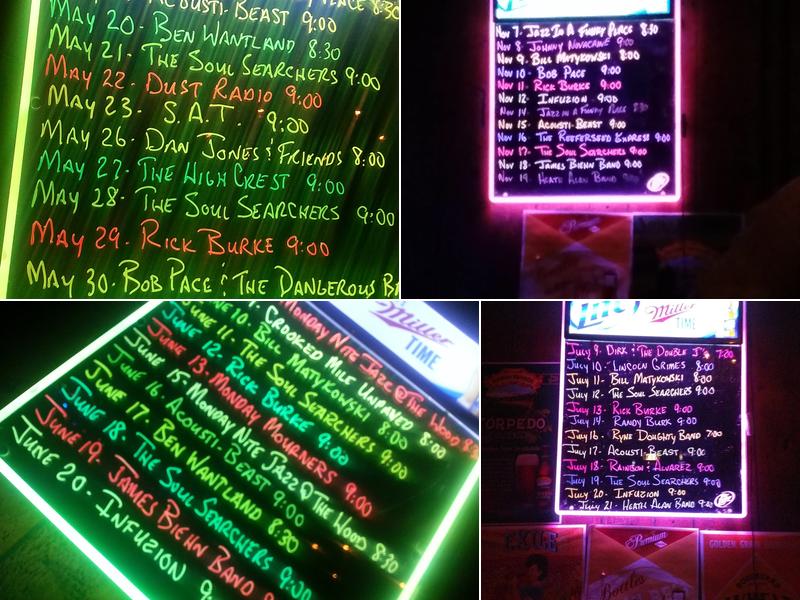 Acousti-Beast 9:00
May 20- Ben Wantland 8:30
May 21- The Soul Searchers 9:00
May 22- Dust Radio 9:00
May 23- S.A.T. 9:00
May 26- Dan Jones & Friends 8:00
May 27- The High Crest 9:00
May 28- The Soul Searchers 9:00
May 29- Rick Burke 9:00
May 30- Bob Pace & The Dangerous B
Nov 7- Jazz In A Funky Place 8:30
Nov 8- Johnny Novacane 9:00
Nov 9- Bill Matykowski 9:00
Nov 10- Bob Pace 9:00
Nov 11- Rick Burke 9:00
Nov 12- Infuzion 9:00
Nov 14- Jazz in a Funky Place 8:30
Nov 15- Acousti-Beast 9:00
Nov 16- The Reeferseed Express 9:00
Nov 17- The Soul Searchers 9:00
Nov 18- James Biehn Band 9:00
Nov 19- Heath Alan Band 9:00
Premium
Miller
TIME
Monday Nite Jazz @ The Wood
Crooked Mile Unpaved 8:00
June 10- Bill Matykowski 8:00
June 11- The Soul Searchers 9:00
June 12- Rick Burke 9:00
June 13- Monday Mourners 9:00
June 15- Monday Nite Jazz @ The Wood 8:30
June 16- Acousti-Beast 9:00
June 17- Ben Wantland 8:30
June 18- The Soul Searchers 9:00
June 19- James Biehn Band 9:00
June 20- Infuzion 9:
Lite
Miller
TIME
July 9- Dirk & The Double J's 7:30
July 10- Lincoln Grimes 8:00
July 11- Bill Matykowski 8:30
July 12- The Soul Searchers 9:00
July 13- Rick Burke 9:00
July 14- Randy Burk 9:00
July 16- Ryne Doughty Band 7:00
July 17- Acousti-Beast 9:00
July 18- Rainbow & Alvarez 9:00
July 19- The Soul Searchers 9:00
July 20- Infuzion 9:00
July 21- Heath Alan Band 9:00
TORPEDO
Premium
Bottles